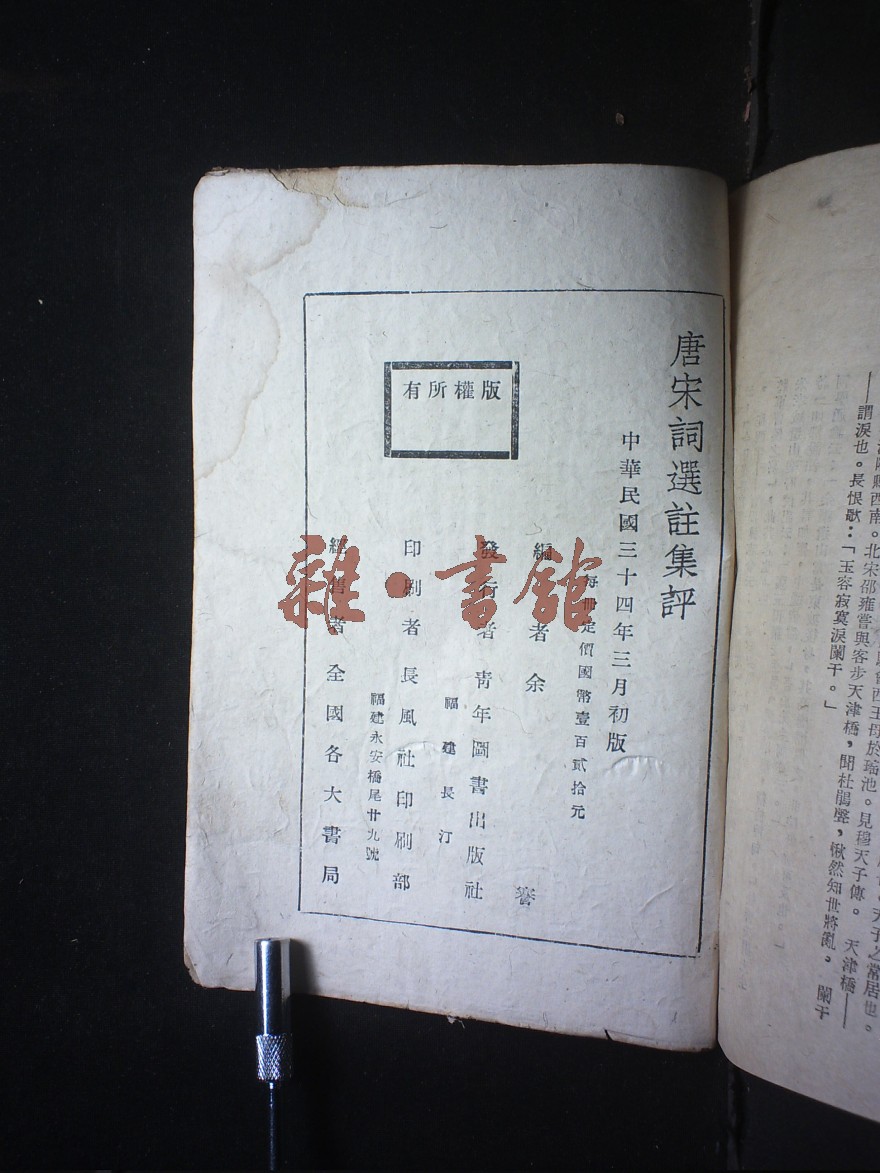 唐宋詞選註集評
中華民國三十四年三月初版
每冊定價國幣壹百貳拾元
編者余謇
發行者青年圖書出版社
福建長汀
印刷者長風社印刷部
福建永安橋尾廿九號
經售者全國各大書局
版權所有
雜·書館
天子之常居也。
西王母於瑤池。見穆天子傳。 天津橋——
縣西南。北宋邵雍嘗與客步天津橋,聞杜鵑聲,愀然知世將亂。 闌干
——謂淚也。長恨歌:「玉容寂寞淚闌干。」